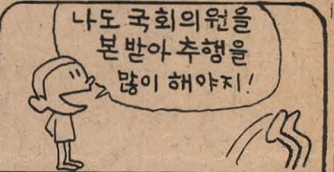 나도 국회의원을
본받아 추행을
많이 해야지!